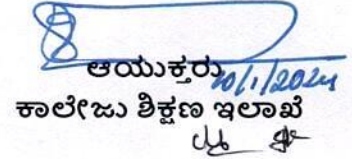 ಆಯುಕ್ತರು
10/1/2024
ಕಾಲೇಜು ಶಿಕ್ಷಣ ಇಲಾಖೆ